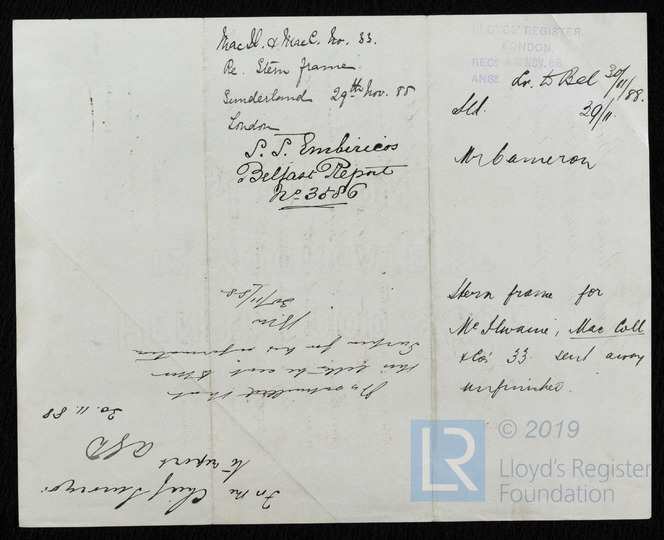 MacIl. & MacC. No. 33.
Re. Stern frame
Sunderland 29th Nov. 88
London
S.S. Embiricos
Belfast Report
No. 3586
LLOYD'S REGISTER,
LONDON.
NOV. 88
Lr. to Bel 30/11/88.
Sld. 29/11.
Mr Cameron
Stern frame for
McIlwaine, MacColl
& Co's 33 sent away
unfinished.
To the Chief Surveyor
to report
30.11.88
submitted that
this letter be sent
Surveyor for his information
30/11/88
© 2019
LR
Lloyd's Register
Foundation